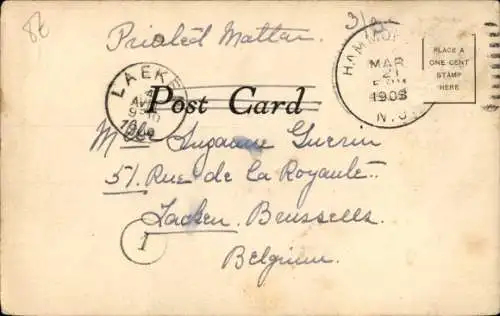 Printed Matter.
HAMMO
MAR
21
1903
N.J.
PLACE A
ONE CENT
STAMP
HERE
LAEKE
Post Card
Mlle Suzanne Guerin
51. Rue de la Royauté.
Lacken. Brussells.
1
Belgium.